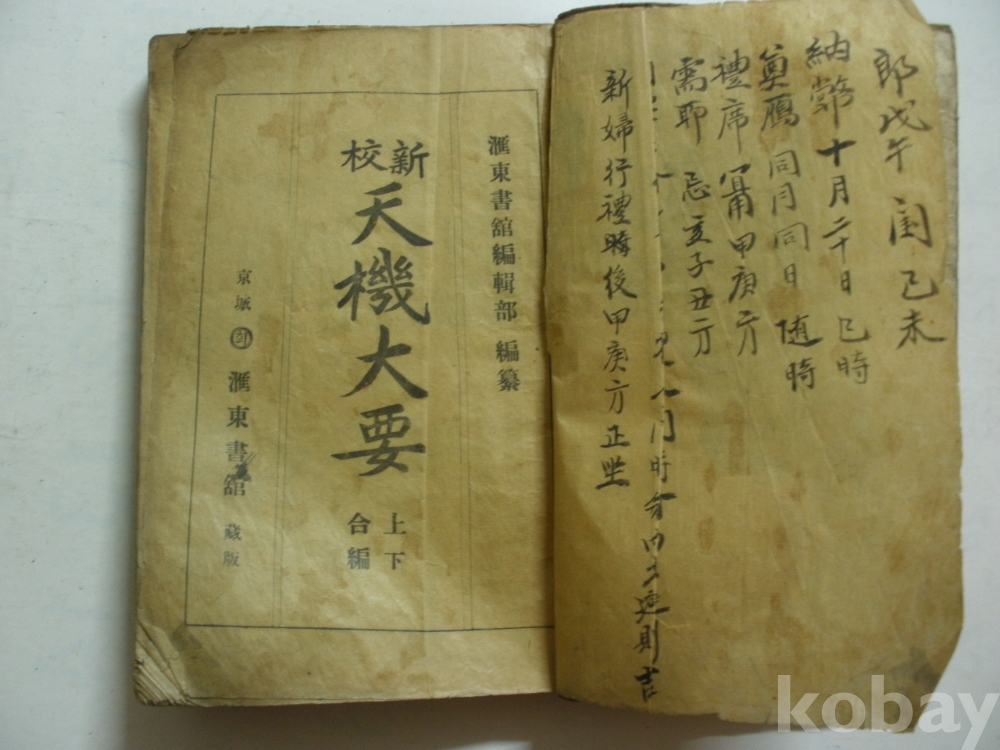 郎戊午 閨己未
納幣十月二十日巳時
奠鴈同月同日随時
禮席 甲庚方
需耶 忌亥子丑方
月時 則吉
新婦行禮時後甲庚方正坐
滙東書舘編輯部 編纂
新校
天機大要
上下
合編
京城 滙東書舘 藏版
kobay